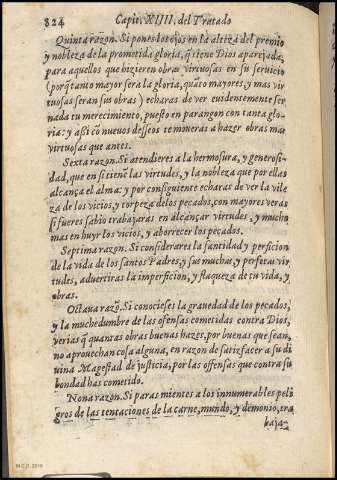 824 Capit. XIIII. del Tratado
Quinta razon. Si pones los ojos en la alteza del premio
y nobleza de la prometida gloria, q̃ tiene Dios aparejada,
para aquellos que hizieren obras virtuosas en su seruicio
(porq̃ tanto mayor sera la gloria, quãto mayores, y mas vir
tuosas seran sus obras) echaras de ver euidentemente ser
nada tu merecimiento, puesto en parangon con tanta glo-
ria: y assi cõ nueuos desseos te moueras a hazer obras mas
virtuosas que antes.
Sexta razon. Si atendieres a la hermosura, y generosi-
dad, que en si tienẽ las virtudes, y la nobleza que por ellas
alcança el alma: y por consiguiente echaras de ver la vile
za de los vicios, y torpeza de los pecados, con mayores veras
si fueres sabio trabajaras en alcançar virtudes, y mucho
mas en huyr los vicios, y aborrecer los pecados.
Septima razon. Si considerares la santidad y perficion
de la vida de los santos Padres, y sus muchas, y perfetas vir
tudes, aduertiras la imperficion, y flaqueza de tu vida, y
obras.
Octaua razõ. Si conociesses la grauedad de los pecados,
y la muchedumbre de las ofensas cometidas contra Dios,
verias q̃ quantas obras buenas hazes, por buenas que sean,
no aprouechan cosa alguna, en razon de satisfacer a su di
uina Magestad de justicia, por las ofensas que contra su
bondad has cometido.
Nona razon. Si paras mientes a los innumerables peli
gros de las tentaciones de la carne, mundo, y demonio, tra
baja-